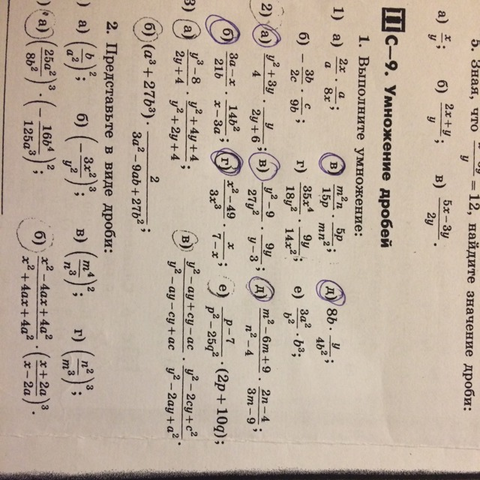 5. Зная, что /y = 12, найдите значение дроби:
а) x/y; б) (2x+y)/y; в) (5x−3y)/2y.
III С–9. Умножение дробей
1. Выполните умножение:
1) а) 2x/a · a/8x; в) m²n/15p · 5p/mn²; д) 8b · y/4b²;
б) −3b/2c · c/9b; г) 35x⁴/18y² · 9y/14x²; е) 3a²/b² · b³;
2) а) (y²+3y)/4 · y/(2y+6); в) (y²−9)/27y² · 9y/(y−3); д) (m²−6m+9)/(n²−4) · (2n−4)/(3m−9);
б) (3a−x)/21b · 14b²/(x−3a); г) (x²−49)/3x³ · x/(7−x); е) (p−7)/(p²−25q²) · (2p+10q);
3) а) (y³−8)/(2y+4) · (y²+4y+4)/(y²+2y+4); в) (y²−ay+cy−ac)/(y²−ay−cy+ac) · (y²−2cy+c²)/(y²−2ay+a²).
б) (a³+27b³) · 2/(3a²−9ab+27b²);
2. Представьте в виде дроби:
1) а) (b/a²)²; б) (−3x²/y²)³; в) (m⁴/n³)²; г) (n²/m³)³;
2) а) (25a²/8b²)³ · (−16b⁴/125a³)²; б) (x²−4ax+4a²)/(x²+4ax+4a²) · ((x+2a)/(x−2a))³.